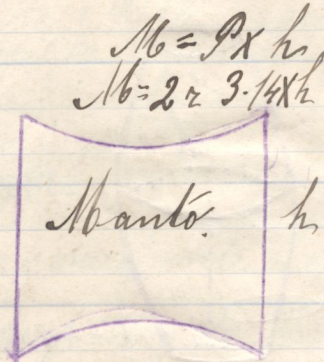 M = P x h
M = 2 r 3.14 x h
Mantó. h